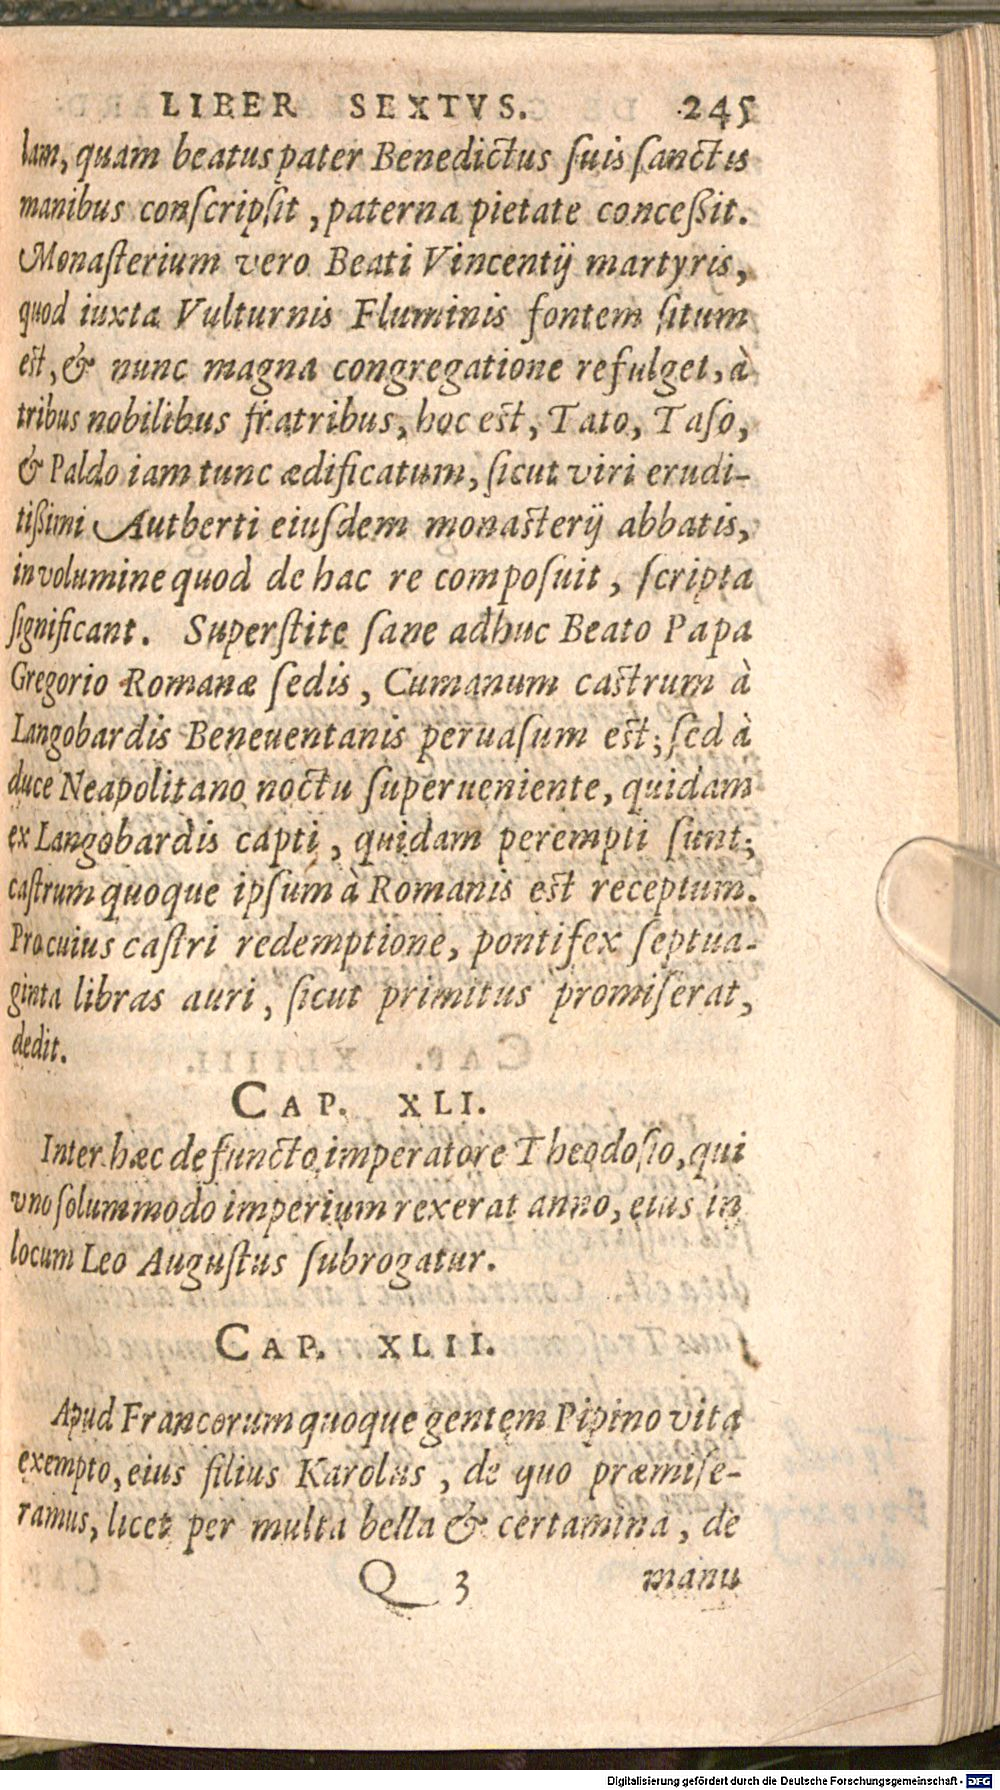 LIBER SEXTVS. 245
lam, quam beatus pater Benedictus ſuis ſanctis
manibus conſcripſit, paterna pietate conceßit.
Monaſterium vero Beati Vincentij martyris,
quod iuxta Vulturnis Fluminis fontem ſitum
est, & nunc magna congregatione refulget, à
tribus nobilibus fratribus, hoc est, Tato, Taſo,
& Paldo iam tunc ædificatum, ſicut viri erudi-
tißimi Autberti eiuſdem monasterij abbatis,
in volumine quod de hac re compoſuit, ſcripta
ſignificant. Superſtite ſane adhuc Beato Papa
Gregorio Romanæ ſedis, Cumanum castrum à
Langobardis Beneuentanis peruaſum est; ſed à
duce Neapolitano noctu ſuperueniente, quidam
ex Langobardis capti, quidam perempti ſunt;
caſtrum quoque ipſum à Romanis est receptum.
Pro cuius caſtri redemptione, pontifex ſeptua-
ginta libras auri, ſicut primitus promiſerat,
dedit.
CAP. XLI.
Inter hæc defuncto imperatore Theodoſio, qui
vno ſolummodo imperium rexerat anno, eius in
locum Leo Auguſtus ſubrogatur.
CAP. XLII.
Apud Francorum quoque gentem Pipino vita
exempto, eius filius Karolus, de quo præmiſe-
ramus, licet per multa bella & certamina, de
Q 3 manu
Digitalisierung gefördert durch die Deutsche Forschungsgemeinschaft - DFG